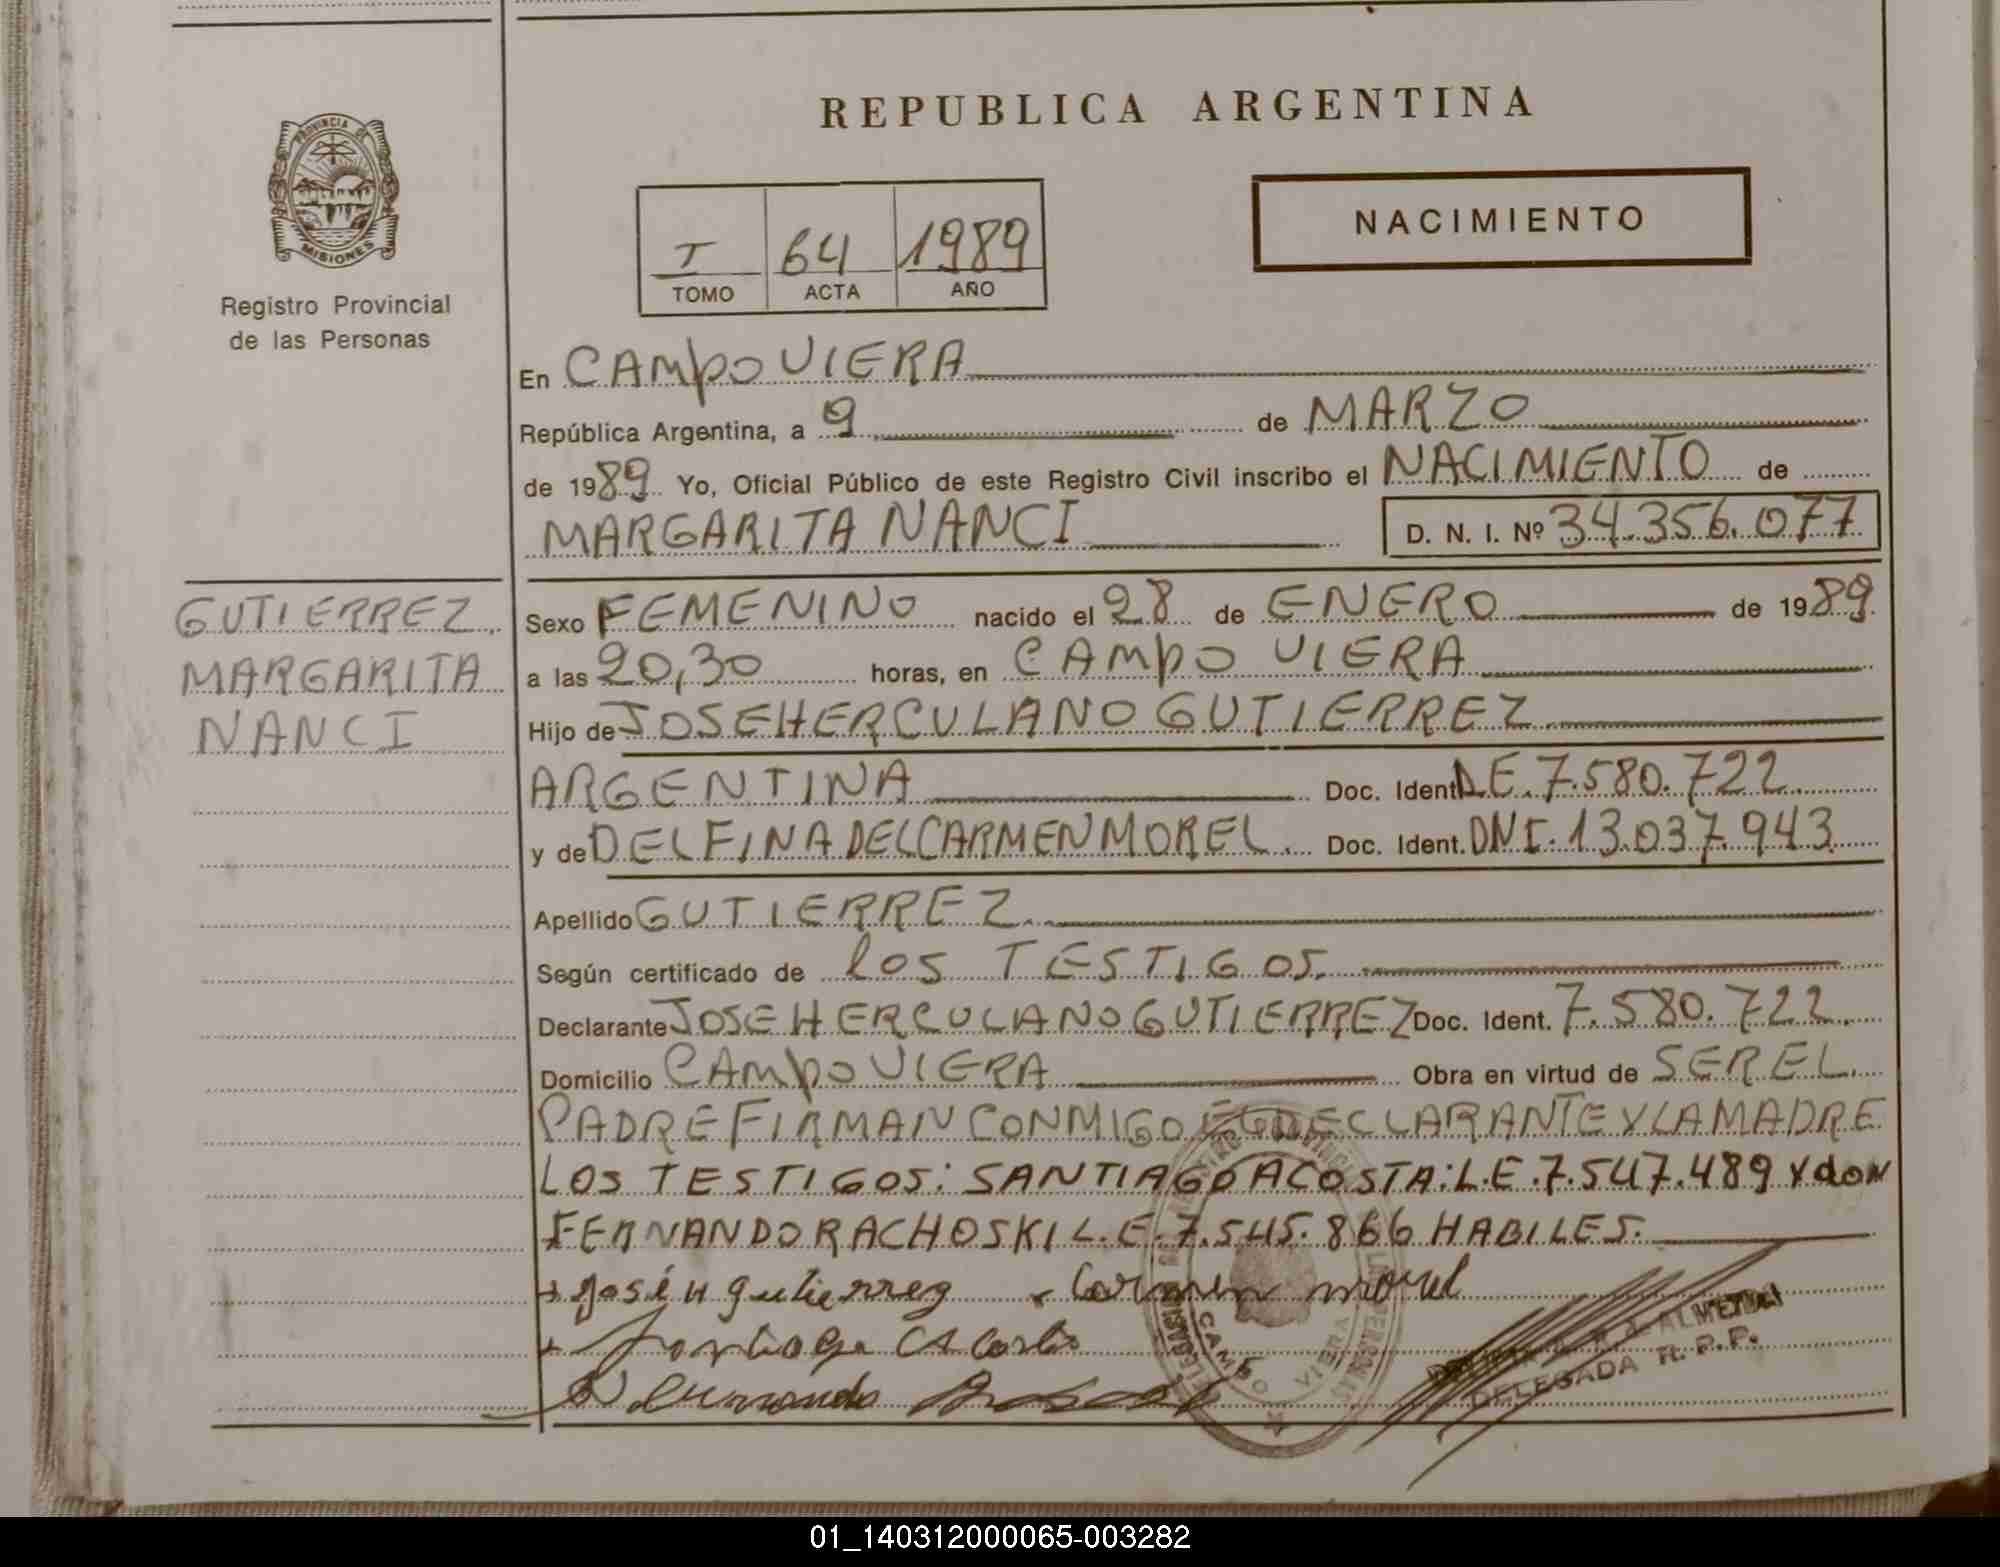 REPUBLICA ARGENTINA
PROVINCIA DE
MISIONES
Registro Provincial
de las Personas
NACIMIENTO
T 64 1989
TOMO ACTA AÑO
En CAMPO VIERA
República Argentina, a 9 de MARZO
de 1989 Yo, Oficial Público de este Registro Civil inscribo el NACIMIENTO de
MARGARITA NANCI D. N. I. Nº 34.356.077
GUTIERREZ,
MARGARITA
NANCI
Sexo FEMENINO nacido el 28 de ENERO de 1989
a las 20,30 horas, en CAMPO VIERA
Hijo de JOSE HERCULANO GUTIERREZ
ARGENTINA Doc. Ident. L.E. 7.580.722
y de DELFINA DEL CARMEN MOREL. Doc. Ident. DNI. 13.037.943
Apellido GUTIERREZ
Según certificado de LOS TESTIGOS.
Declarante JOSE HERCULANO GUTIERREZ Doc. Ident. 7.580.722
Domicilio CAMPO VIERA Obra en virtud de SER EL
PADRE FIRMAN CONMIGO EL DECLARANTE Y LA MADRE
LOS TESTIGOS: SANTIAGO ACOSTA: L.E. 7.547.489 Y DON
FERNANDO RACHOSKI L.E. 7.545.866 HABILES.
José H Gutierrez Carmen Morel
Santiago Acosta
Fernando
CAMPO VIERA
ALMEIDA
DELEGADA R.P.P.
01_140312000065-003282